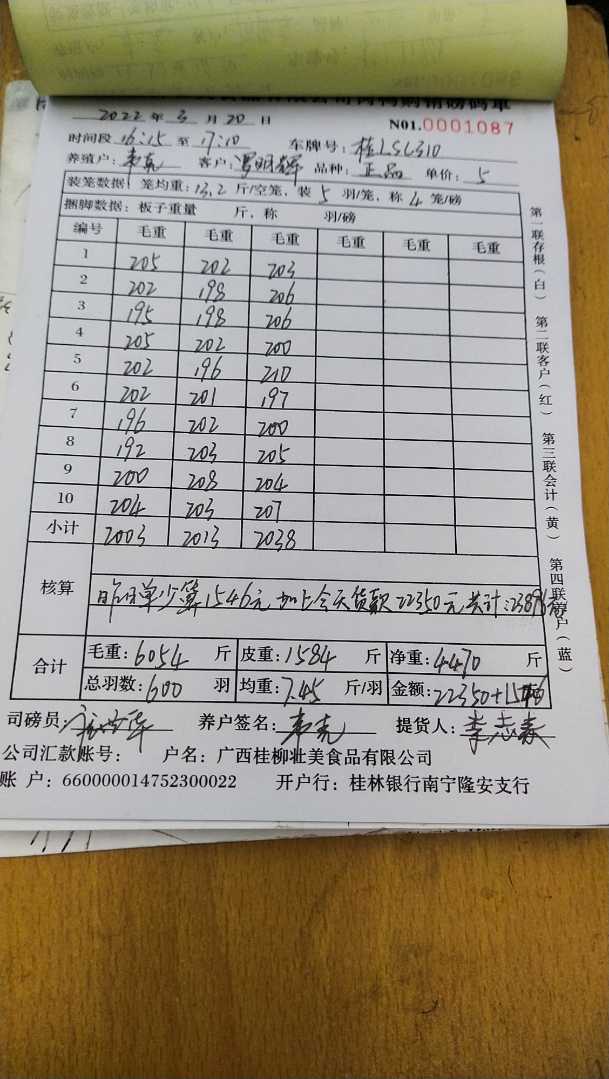 肉鸭购销磅码单
2022 年 3 月 20 日 N01.0001087
时间段 16:15 至 17:10 车牌号: 桂LSL310
养殖户: 韦克 客户: 罗明辉 品种: 正品 单价: 5
装笼数据: 笼均重: 13.2 斤/空笼、装 5 羽/笼、称 4 笼/磅
捆脚数据: 板子重量 斤, 称 羽/磅
编号 毛重 毛重 毛重 毛重 毛重 毛重
1 205 202 203
2 202 198 206
3 195 198 206
4 205 202 200
5 202 196 210
6 202 201 197
7 196 202 200
8 192 203 205
9 200 208 204
10 204 203 207
小计 2003 2013 2038
核算 昨日单少算1546元 加上今天货款22350元 共计:23896元
合计 毛重: 6054 斤 皮重: 1584 斤 净重: 4470 斤
总羽数: 600 羽 均重: 7.45 斤/羽 金额: 22350+1546
司磅员: 养户签名: 韦克 提货人: 李志春
公司汇款账号: 户名: 广西桂柳壮美食品有限公司
账 户: 660000014752300022 开户行: 桂林银行南宁隆安支行
第一联存根(白)
第二联客户(红)
第三联会计(黄)
第四联养户(蓝)